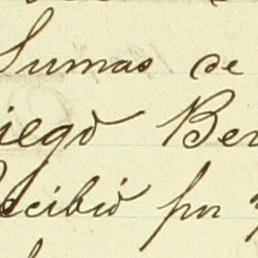 Sumas de
iego Ber
Recibió por